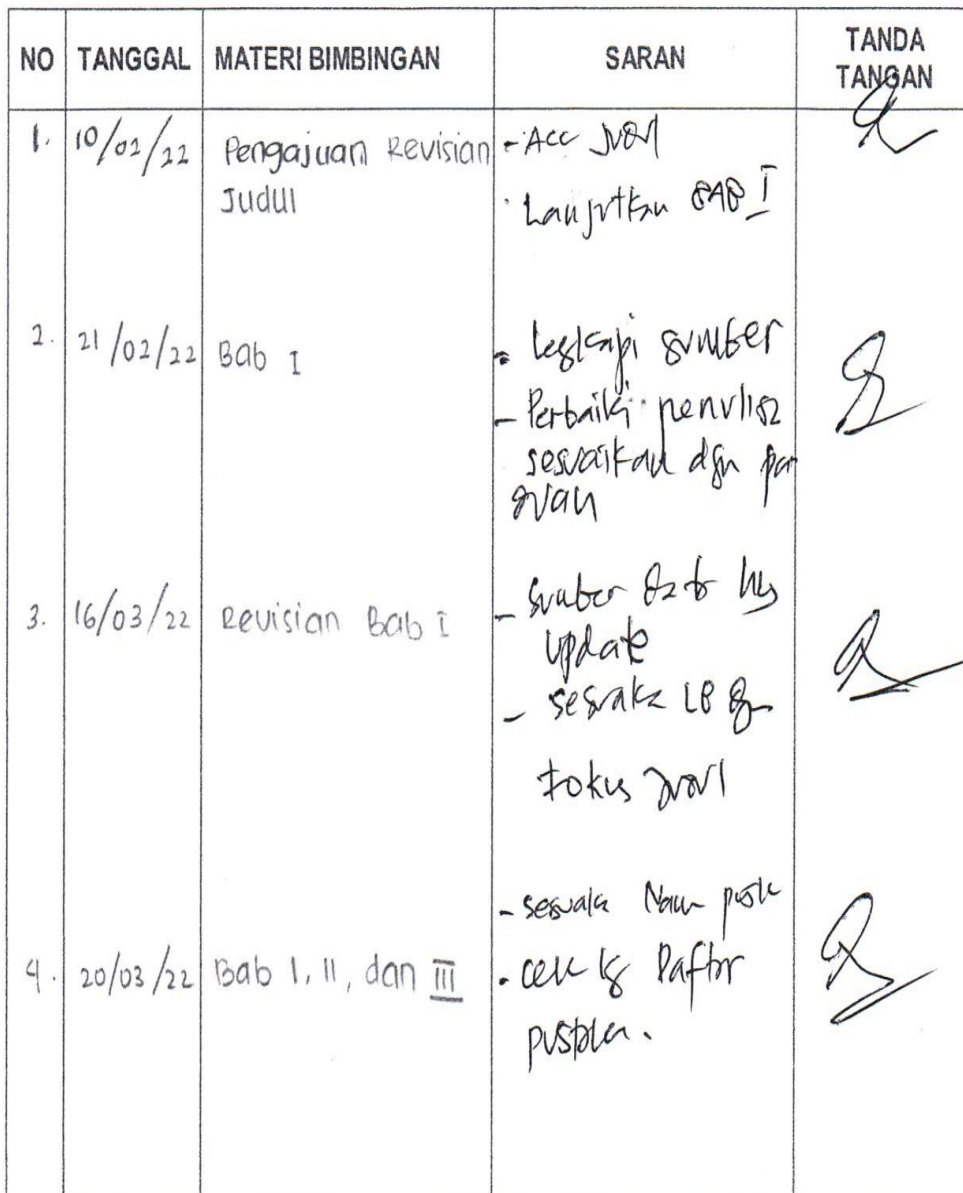 NO TANGGAL MATERI BIMBINGAN SARAN TANDA TANGAN
1. 10/02/22 Pengajuan Revisian Judul
- Acc Judul
- Lanjutkan BAB I
2. 21/02/22 Bab I
- Lengkapi sumber
- Perbaiki penulisan
sesuaikan dgn pan
duan
3. 16/03/22 Revisian Bab I
- sumber data hrs
update
- sesuaikan LB dgn
fokus judul
4. 20/03/22 Bab I, II, dan III
- sesuaikan
- cek lg Daftar
pustaka.